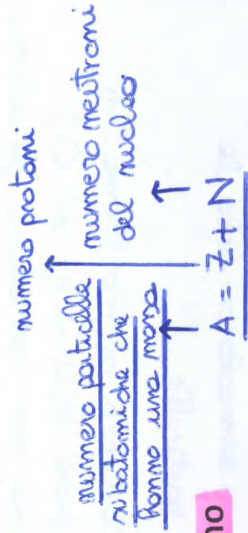 numero protoni
numero particelle
subatomiche che
hanno una massa
numero neutroni
del nucleo
A = Z + N
no